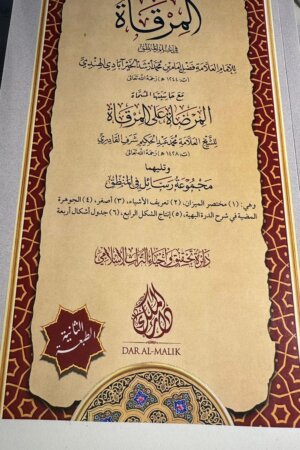 المرقاة
في علم المنطق
للإمام العلامة فضل إمام بن محمد أرشد الخيرآبادي الهندي
(ت: ١٢٤٤ هـ) رحمه الله تعالى
مع حاشيتها المسماة
المرضاة على المرقاة
للشيخ العلامة محمد عبد الحكيم شرف القادري
(ت: ١٤٢٨ هـ) رحمه الله تعالى
وتليهما
مجموعة رسائل في المنطق
وهي: (١) مختصر الميزان، (٢) تعريف الأشياء، (٣) أصغر، (٤) الجوهرة
المضية في شرح الدرة البهية، (٥) إنتاج الشكل الرابع، (٦) جدول أشكال أربعة
دائرة تحقيق وإحياء التراث الإسلامي
دار الملك
DAR AL-MALIK
الطبعة
الثانية